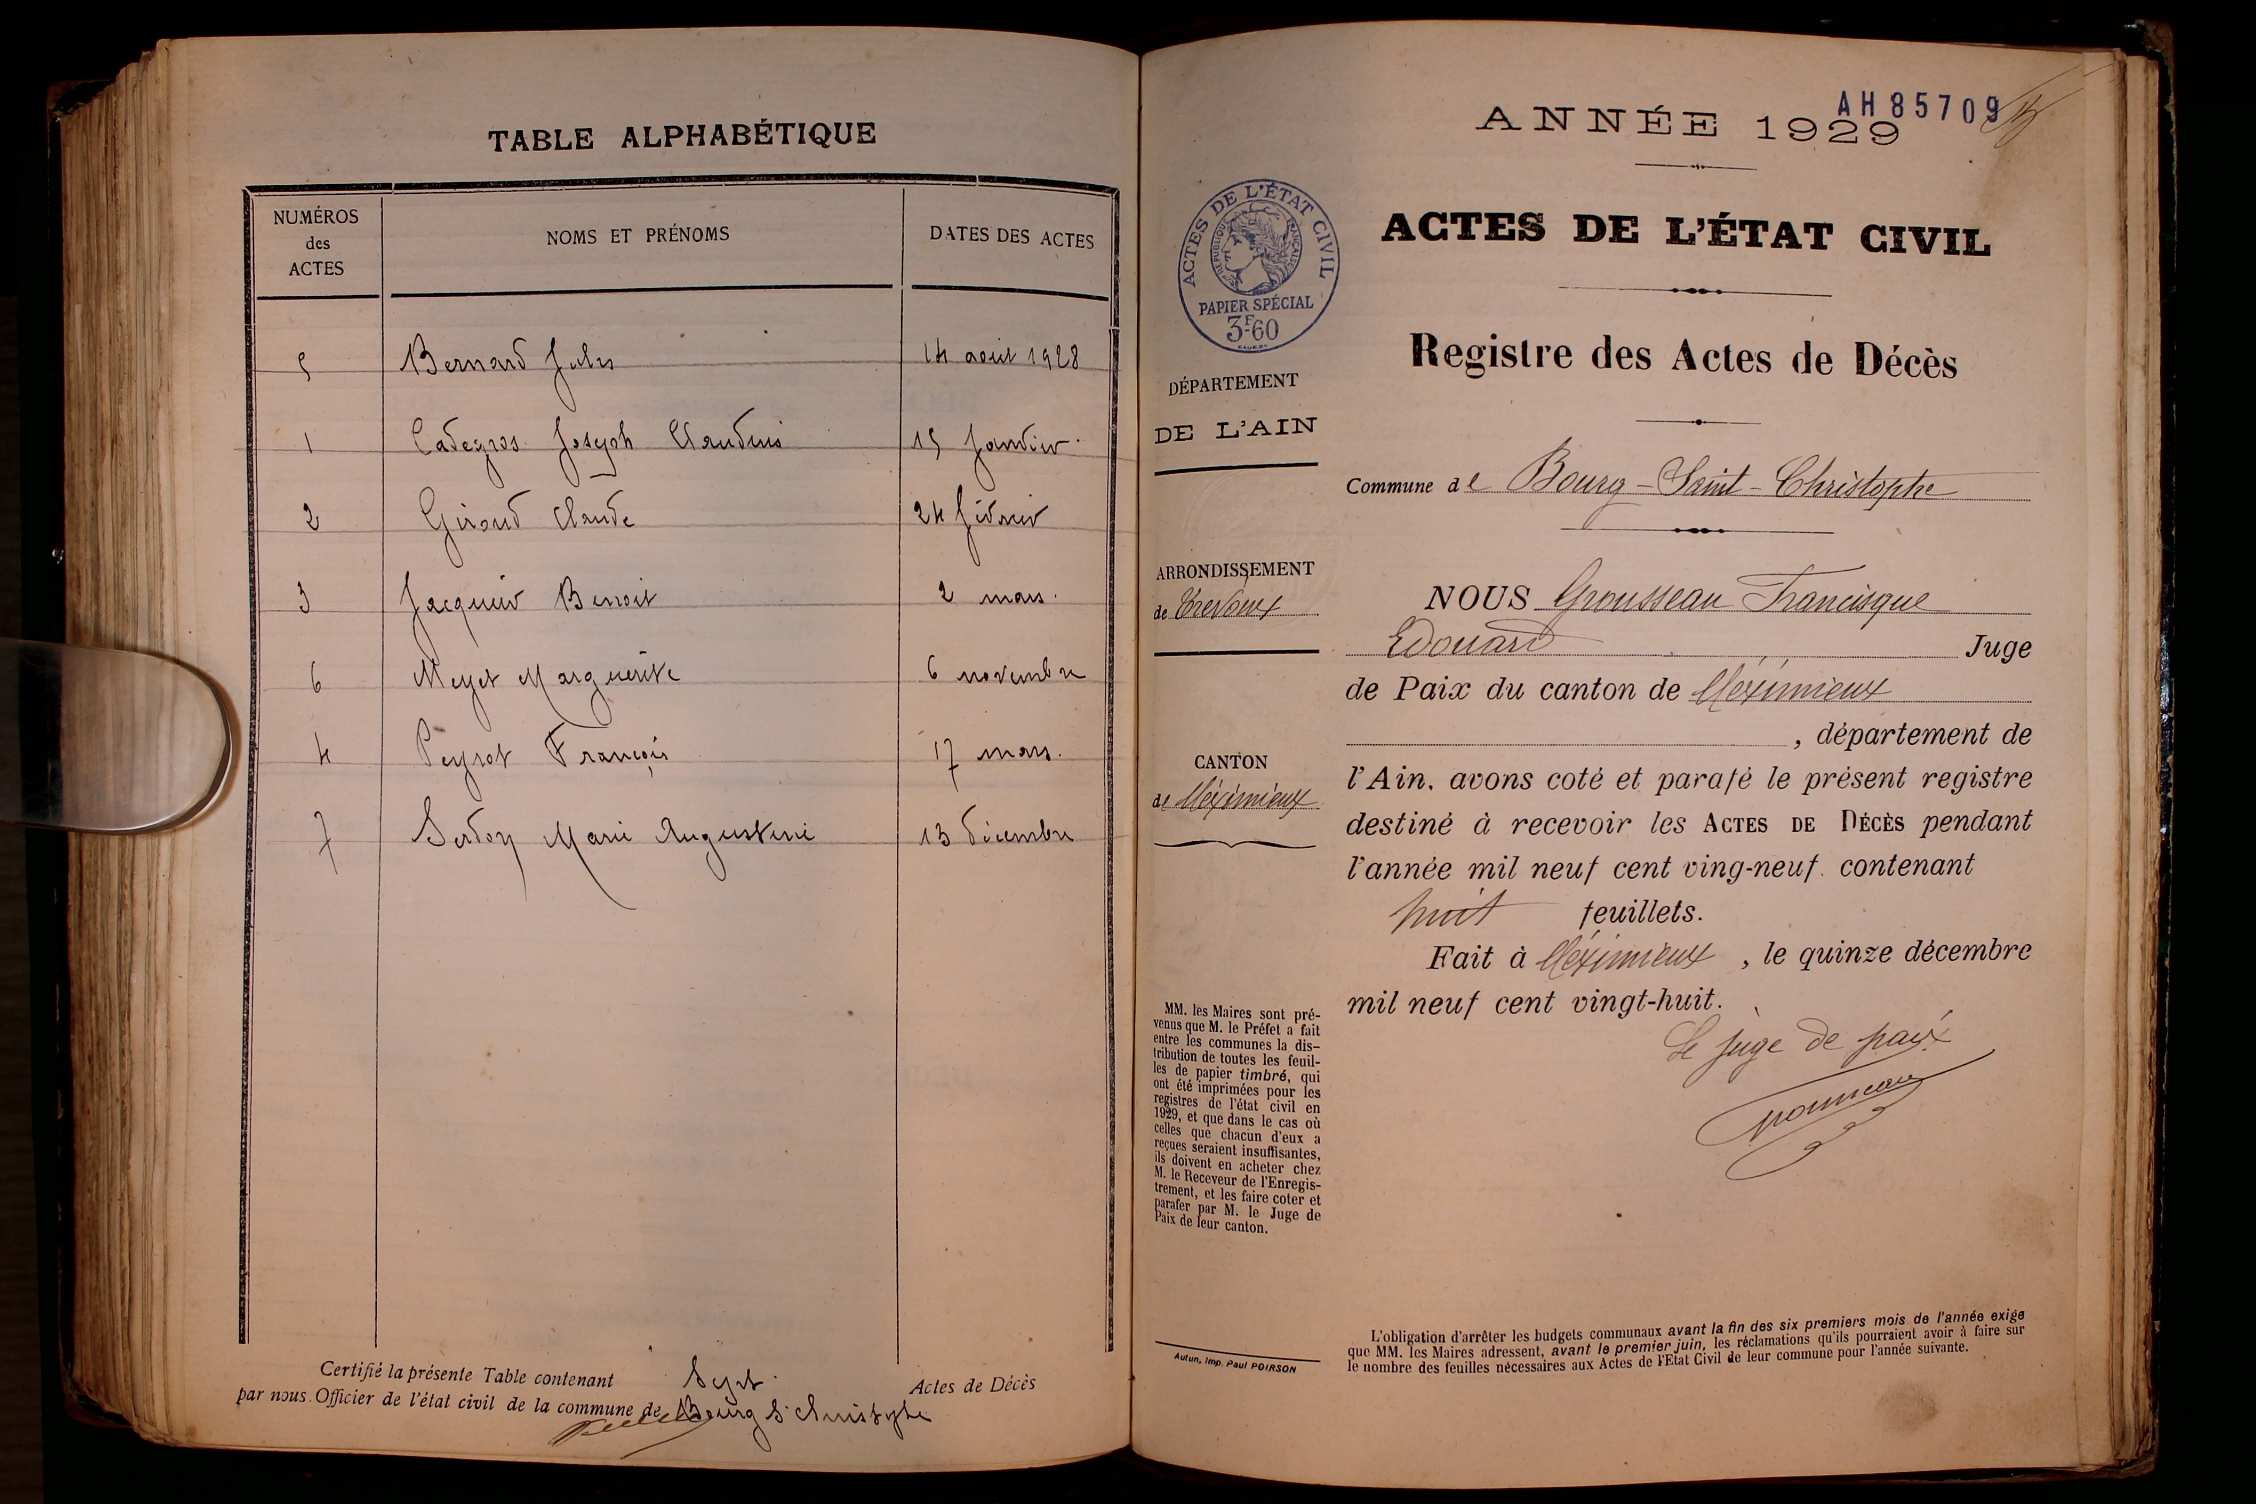 TABLE ALPHABÉTIQUE
NUMÉROS
des
ACTES
NOMS ET PRÉNOMS
DATES DES ACTES
5 Bernard Jules 14 août 1928
1 Cadegros Joseph Claudius 15 Janvier
2 Giroud Claude 24 février
3 Jacquier Benoit 2 mars.
6 Meyet Marguerite 6 novembre
4 Peyrot François 17 mars.
7 Serdon Marie Augustine 13 décembre
Certifié la présente Table contenant Sept Actes de Décès
par nous Officier de l'état civil de la commune de Bourg St Christophe
AH 85709
ANNÉE 1929
ACTES DE L'ÉTAT CIVIL
RÉPUBLIQUE FRANÇAISE
PAPIER SPÉCIAL
3F60
ACTES DE L'ÉTAT CIVIL
Registre des Actes de Décès
DÉPARTEMENT
DE L'AIN
Commune de Bourg-Saint-Christophe
ARRONDISSEMENT
de Trévoux
CANTON
de Méximieux
NOUS Grousseau Francisque
Edouard Juge
de Paix du canton de Méximieux
, département de
l'Ain, avons coté et parafé le présent registre
destiné à recevoir les ACTES DE DÉCÈS pendant
l'année mil neuf cent ving-neuf. contenant
huit feuillets.
Fait à Méximieux, le quinze décembre
mil neuf cent vingt-huit.
Le juge de paix
MM. les Maires sont pré-
venus que M. le Préfet a fait
entre les communes la dis-
tribution de toutes les feuil-
les de papier timbré, qui
ont été imprimées pour les
registres de l'état civil en
1929, et que dans le cas où
celles que chacun d'eux a
reçues seraient insuffisantes,
ils doivent en acheter chez
M. le Receveur de l'Enregis-
trement, et les faire coter et
parafer par M. le Juge de
Paix de leur canton.
Autun, Imp. Paul POIRSON
L'obligation d'arrêter les budgets communaux avant la fin des six premiers mois de l'année exige
que MM. les Maires adressent, avant le premier juin, les réclamations qu'ils pourraient avoir à faire sur
le nombre des feuilles nécessaires aux Actes de l'Etat Civil de leur commune pour l'année suivante.